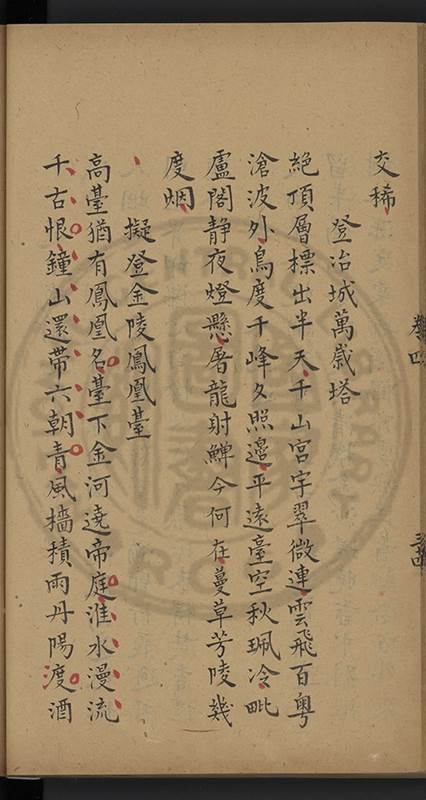 交稀
登冶城萬歲塔
絶頂層標出半天千山宮宇翠微連雲飛百粤
滄波外鳥度千峰夕照邊平遠臺空秋珮冷毗
盧閣静夜燈懸屠龍射鱓今何在蔓草芳陵幾
度烟
擬登金陵鳳凰臺
高臺猶有鳳凰名臺下金河遶帝庭淮水漫流
千古恨鐘山還帶六朝青風檣積雨丹陽渡酒